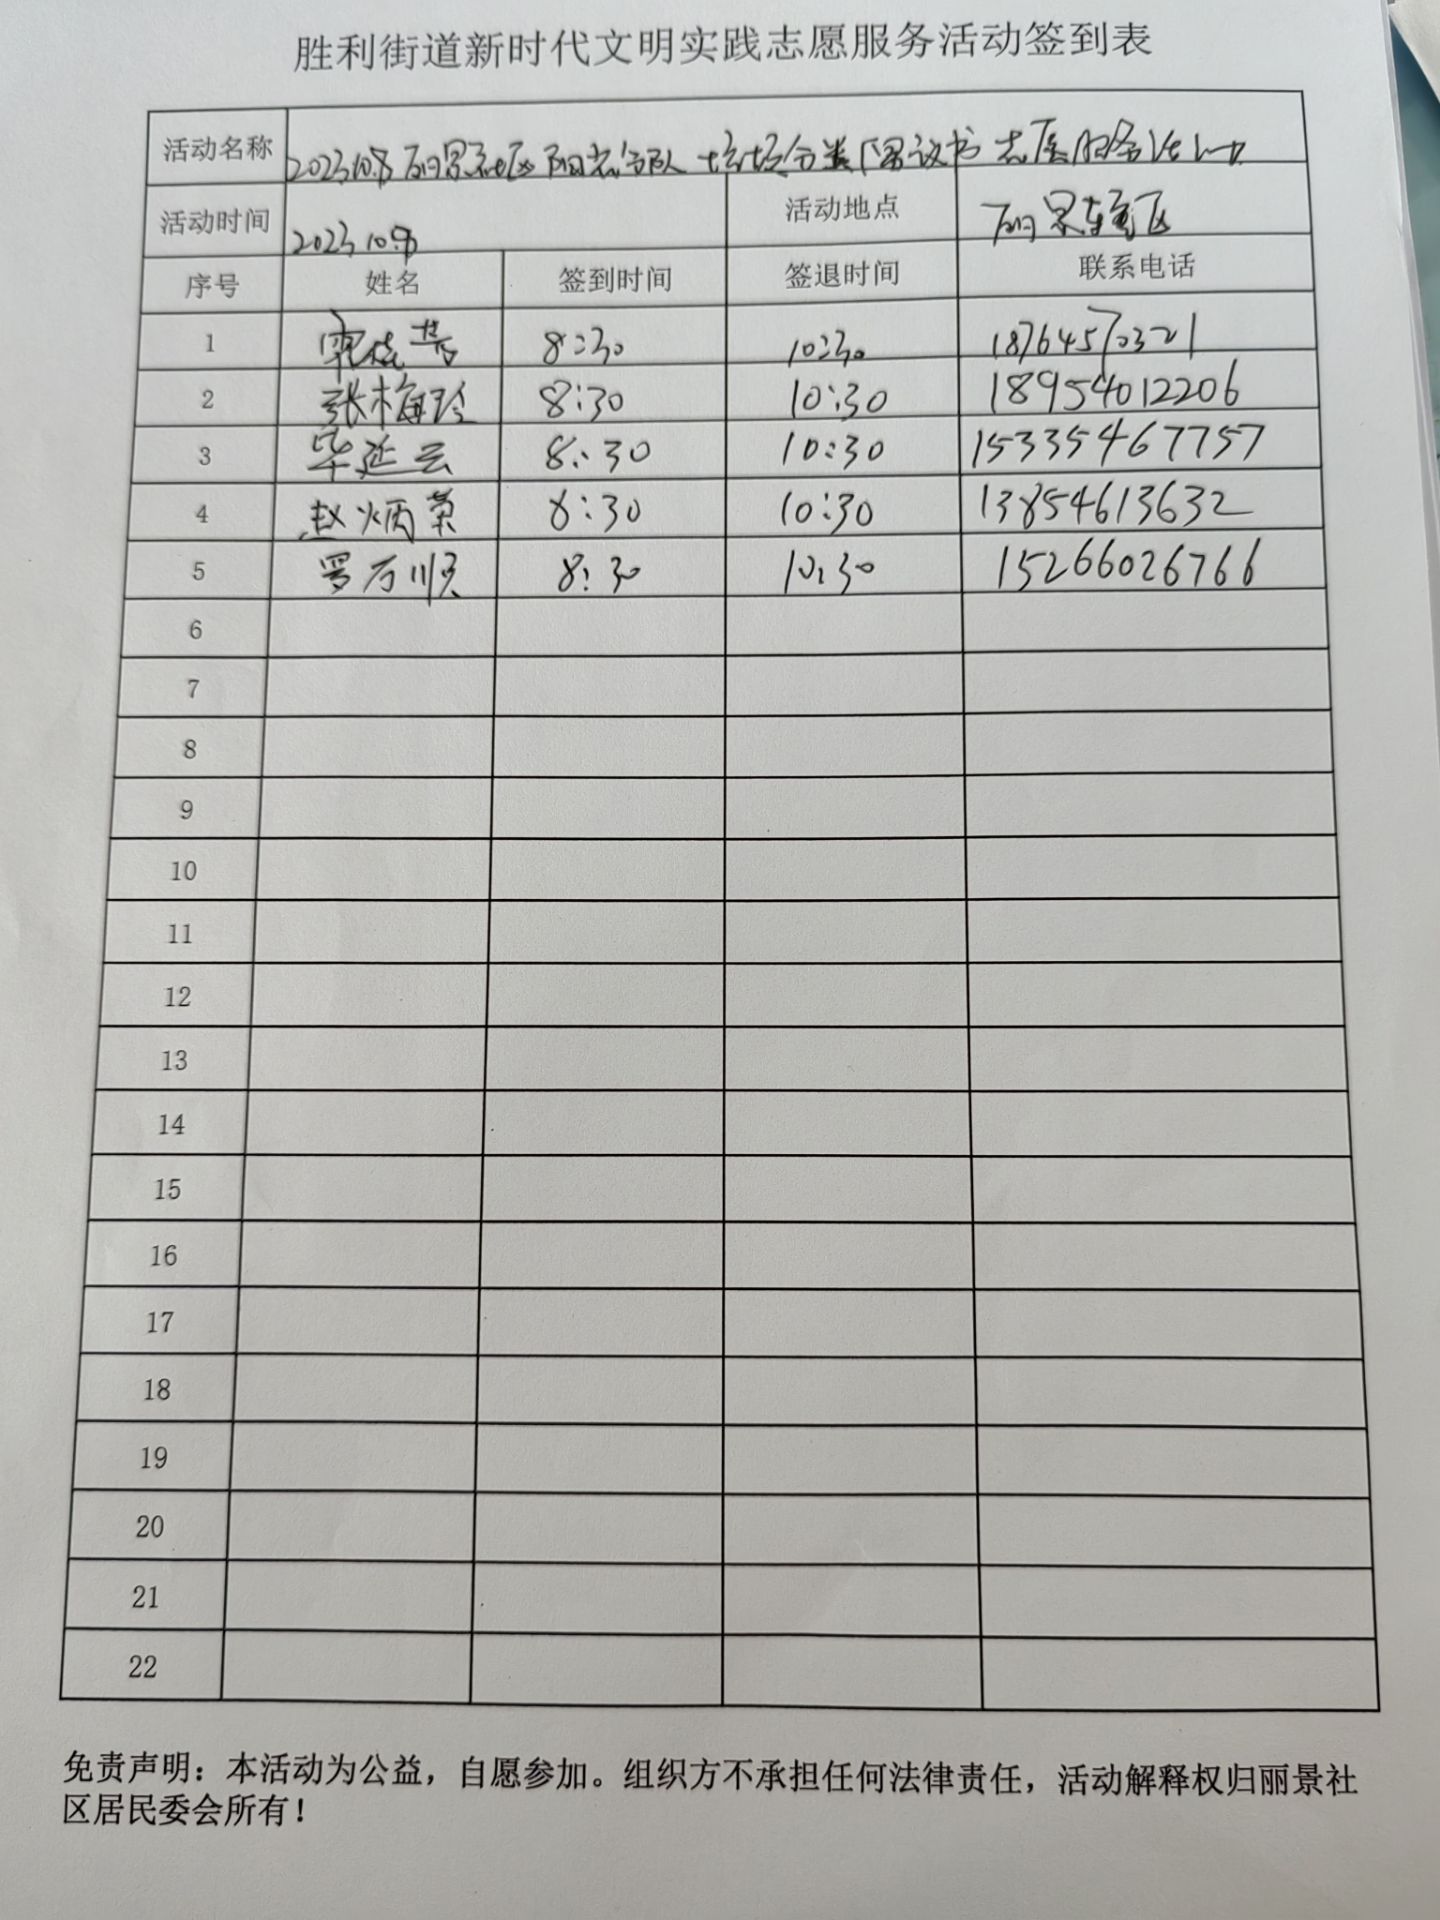 胜利街道新时代文明实践志愿服务活动签到表
活动名称 2023.10.8 丽景社区阳光分队 垃圾分类倡议书 志愿服务活动
活动时间 2023.10.8 活动地点 丽景东区
序号 姓名 签到时间 签退时间 联系电话
1 8:30 10:30 18764570321
2 张梅玲 8:30 10:30 18954012206
3 毕延云 8:30 10:30 15335467757
4 赵炳荣 8:30 10:30 13854613632
5 罗万顺 8:30 10:30 15266026766
6
7
8
9
10
11
12
13
14
15
16
17
18
19
20
21
22
免责声明：本活动为公益，自愿参加。组织方不承担任何法律责任，活动解释权归丽景社
区居民委会所有！